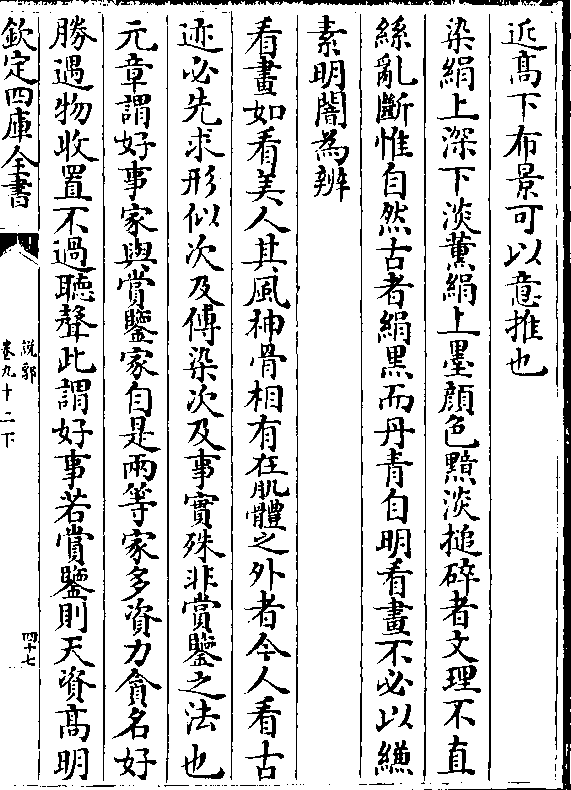 近髙下布景可以意推也
染絹上深下淡薰絹上墨顔色黯淡搥碎者文理不直
絲亂斷惟自然古者絹黒而丹青自明看畫不必以縑
素明闇為辨
看畫如看美人其風神骨相有在肌體之外者今人看古
迹必先求形似次及傅染次及事實殊非賞鑒之法也
元章謂好事家與賞鑒家自是兩等家多資力貪名好
勝遇物收置不過聽聲此謂好事若賞鑒則天資髙明
欽定四庫全書
說郛
卷九十二下
四十七